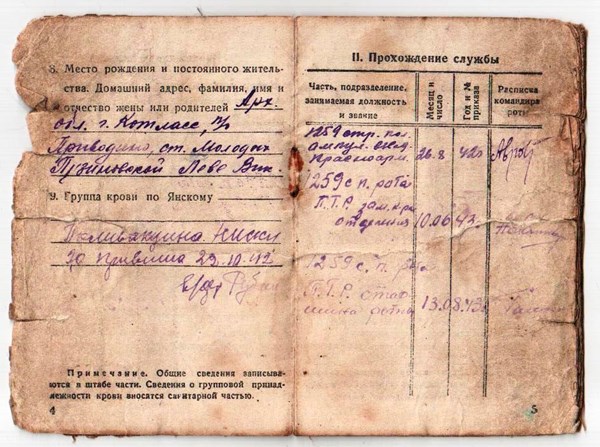 8. Место рождения и постоянного житель-
ства. Домашний адрес, фамилия, имя и
отчество жены или родителей Арх.
обл. г. Котласс, п/о
Приводино, ст. Молодых
Пузиновской
9. Группа крови по Янскому
Поливакцина НИСИ
29.10.42
Примечание. Общие сведения записыва-
ются в штабе части. Сведения о групповой принад-
лежности крови вносятся санитарной частью.
4
II. Прохождение службы
Часть, подразделение, занимаемая должность и звание
Месяц и число
Год и № приказа
Расписка командира роты
1259 стр. пол.
Красноарм. 26.8 42г
1259 с. п. рота
П.Т.Р. зам. ком.
отделения 10.06 43.
1259 с. п. рота
П.Т.Р. стар-
шина роты 13.08.43г.
5